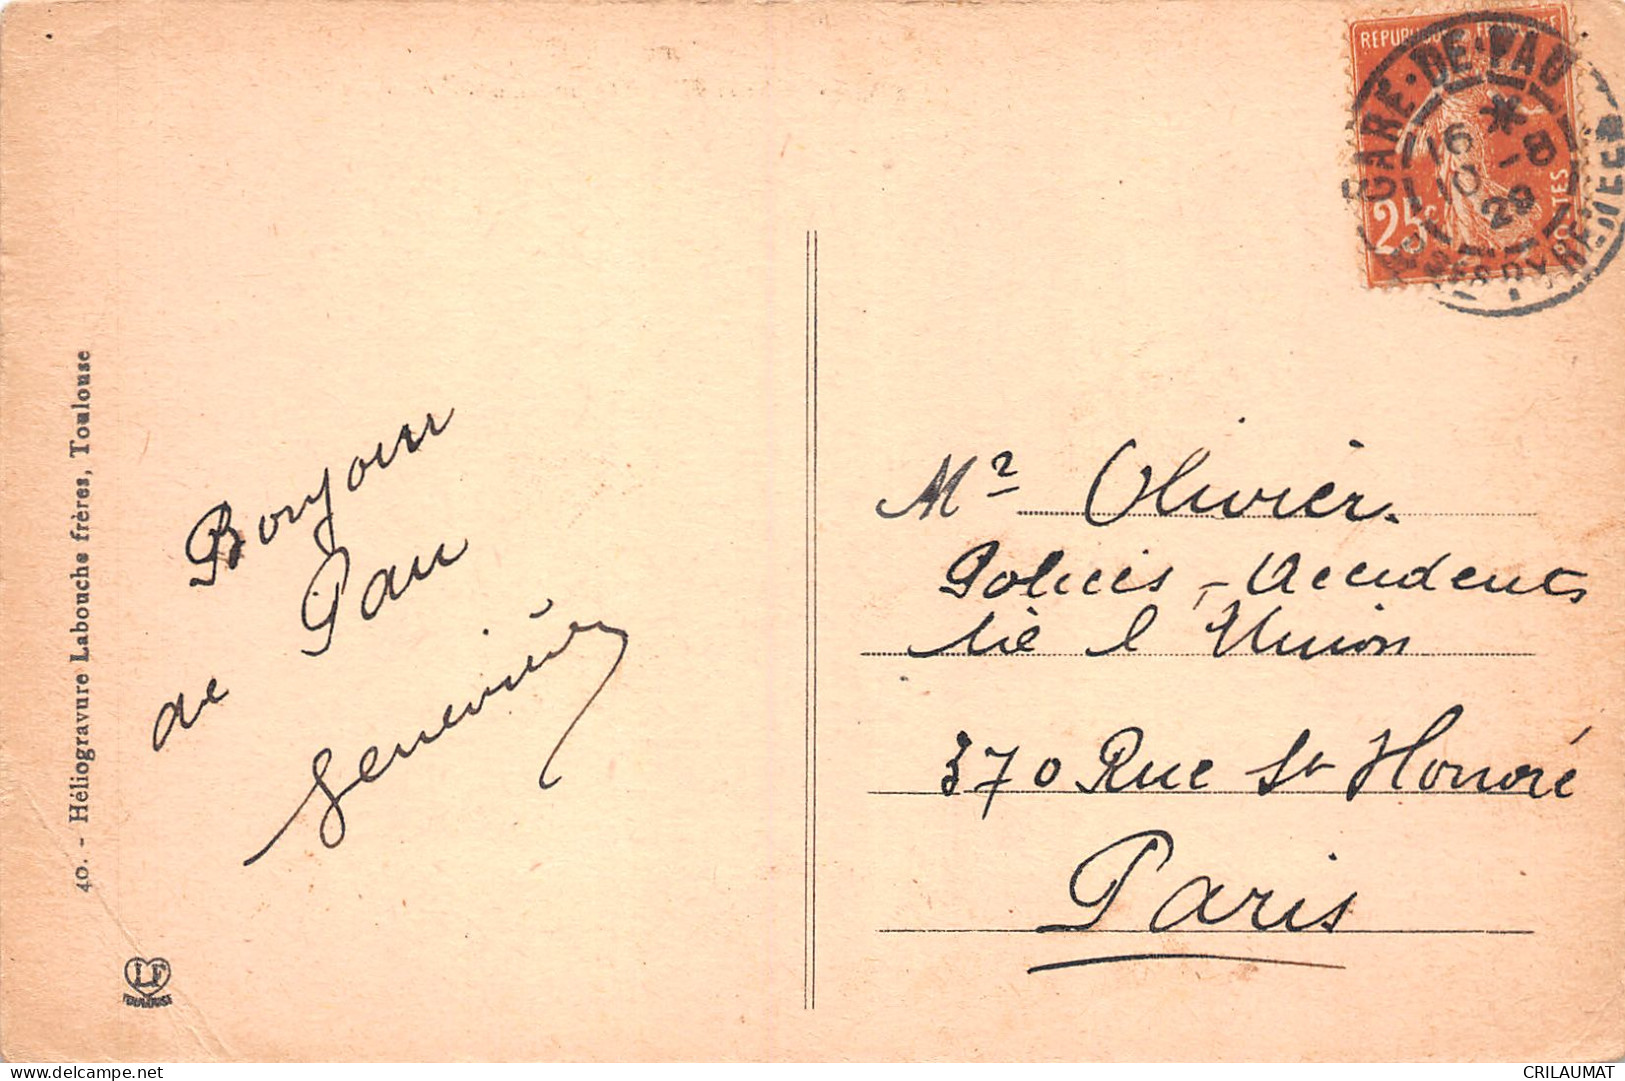 40. - Héliogravure Labouche frères, Toulouse
LF
TOULOUSE
Bonjour
de Pau
Geneviève
RÉPUBLIQUE FRANÇAISE
25c
POSTES
GARE·DE·PAU
16 *
10 - 8
29
Mr Olivier.
Polices - Accidents
Cie l'Union
370 Rue St Honoré
Paris
delcampe.net
CRILAUMAT